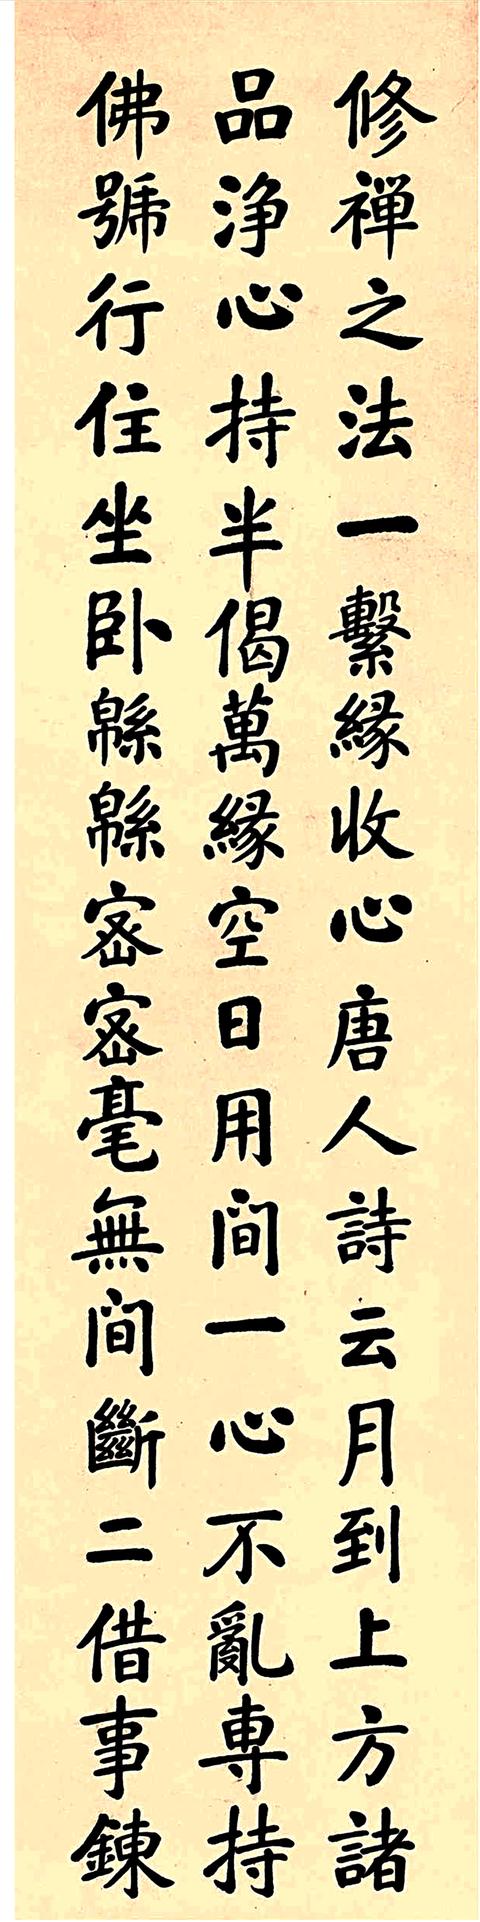 修禅之法一繫緣收心唐人詩云月到上方諸
品淨心持半偈萬緣空日用间一心不亂専持
佛號行住坐卧緜緜宻宻毫無间斷二借事鍊